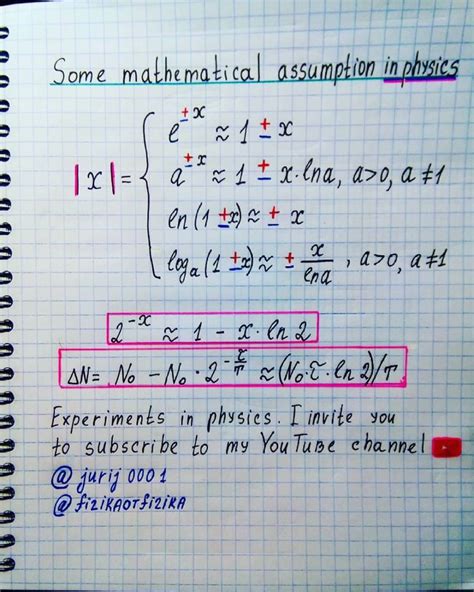 Some mathematical assumption in physics
|x| = {
e^{±x} ≈ 1 ± x
a^{±x} ≈ 1 ± x·lna, a>0, a≠1
ln(1 ±x) ≈ ± x
log_a(1 ±x) ≈ ± x/lna, a>0, a≠1
2^{-x} ≈ 1 - x·ln2
ΔN = N₀ - N₀·2^{-τ/T} ≈ (N₀·τ·ln2)/T
Experiments in physics. I invite you
to subscribe to my YouTube channel
@ jurij 0001
@fizikaotfizika